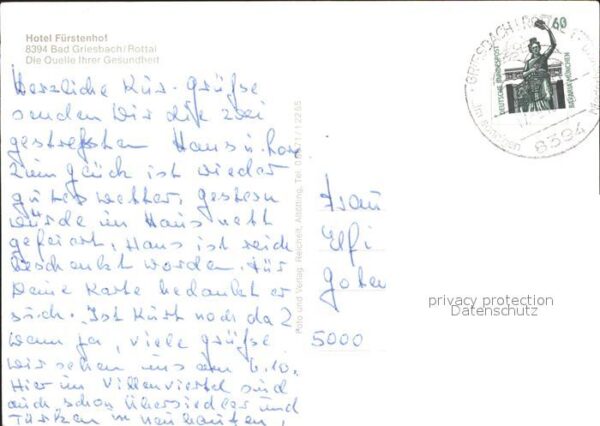 Hotel Fürstenhof
8394 Bad Griesbach/Rottal
Die Quelle Ihrer Gesundheit
Herzliche Kur-Grüße
senden Wir die zwei
gestreßten Hans u. Lore
Zum Glück ist wieder
gutes Wetter. Gestern
wurde im Haus nett
gefeiert, Hans ist reich
beschenkt worden. Für
Deine Karte bedankt er
sich. Ist Kurt noch da?
wenn ja, viele Grüße
wir sehen uns am 6.10.
Hier im Villenviertel sind
auch schon Übersiedler und
Türken in Neubauten,
Foto und Verlag: Reichelt, Altötting, Tel.
60
DEUTSCHE BUNDESPOST
BAVARIA MÜNCHEN
GRIESBACH I ROTTAL
8394
Frau
Elfi
5000
privacy protection
Datenschutz